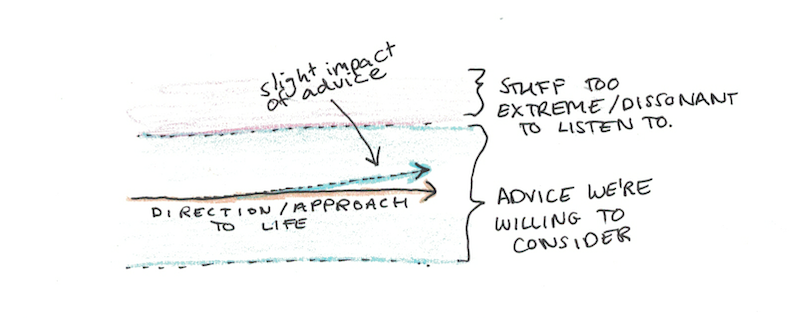 slight impact
of advice
STUFF TOO
EXTREME/DISSONANT
TO LISTEN TO.
DIRECTION/APPROACH
TO LIFE
ADVICE WE'RE
WILLING TO
CONSIDER